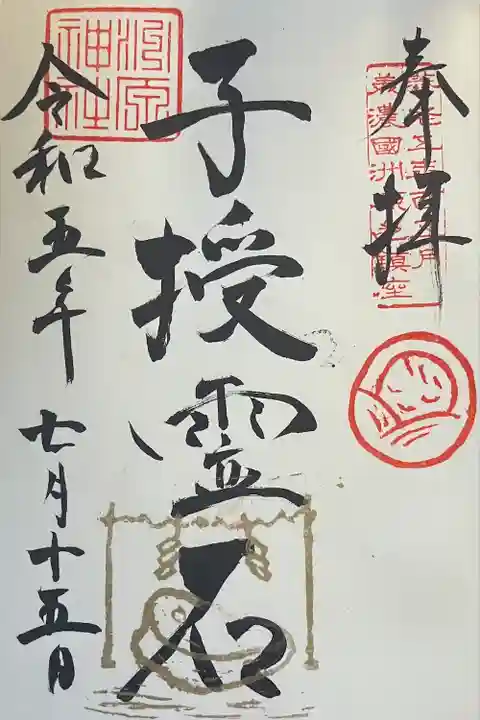 奉拝
美濃國洲原鎮座
子授霊石
洲原神社
令和五年七月十五日